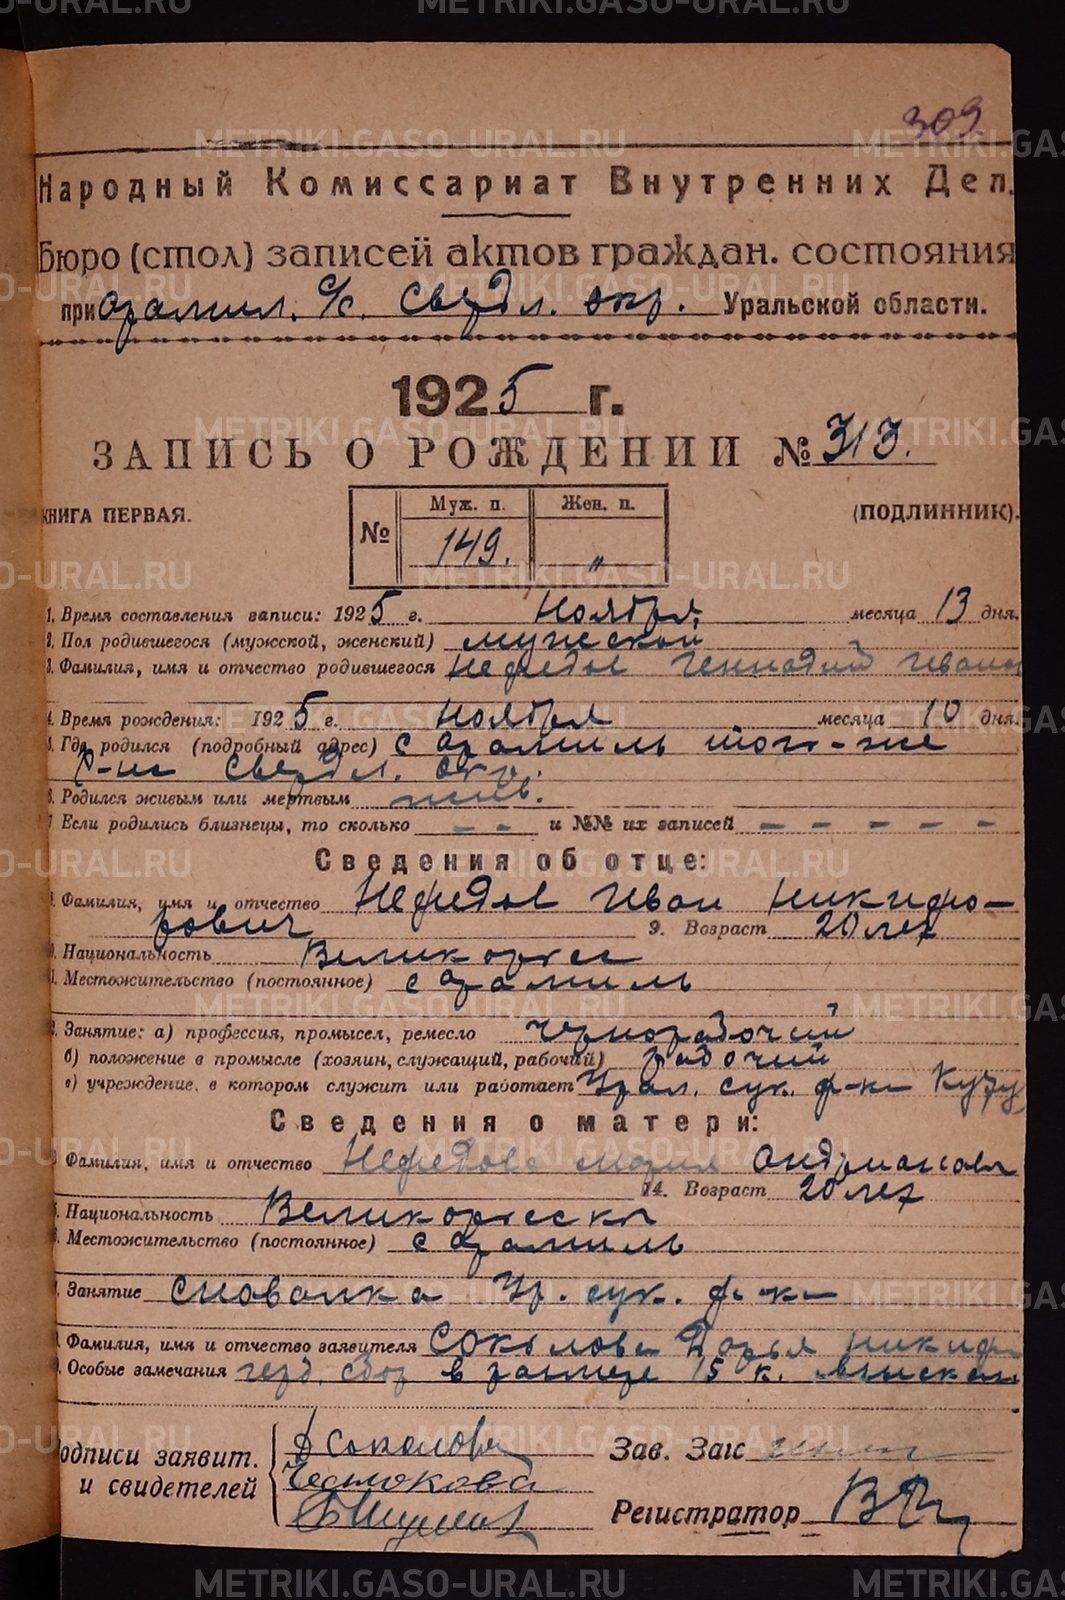 METRIKI.GASO-URAL.RU
309
Народный Комиссариат Внутренних Дел.
Бюро (стол) записей актов граждан. состояния
при Арамил. с/с. Свердл. окр. Уральской области.
1925 г.
ЗАПИСЬ О РОЖДЕНИИ № 313.
КНИГА ПЕРВАЯ.
(ПОДЛИННИК).
№ Муж. п. Жен. п.
149. "
1. Время составления записи: 1925 г. Ноября месяца 13 дня.
2. Пол родившегося (мужской, женский) мужской
3. Фамилия, имя и отчество родившегося Нефедов Геннадий Иванов
4. Время рождения: 1925 г. Ноября месяца 10 дня.
5. Где родился (подробный адрес) с Арамиль того-же
р-на Свердл. окр.
6. Родился живым или мертвым жив.
7 Если родились близнецы, то сколько – – и №№ их записей – – – – –
Сведения об отце:
8. Фамилия, имя и отчество Нефедов Иван Никифо-
рович 9. Возраст 20 лет
10. Национальность Великоросс
11. Местожительство (постоянное) с Арамиль
12. Занятие: а) профессия, промысел, ремесло чернорабочий
б) положение в промысле (хозяин, служащий, рабочий) рабочий
в) учреждение, в котором служит или работает Урал. сук. ф-ка
Сведения о матери:
13 Фамилия, имя и отчество Нефедова Мария
14. Возраст 20 лет
15. Национальность Великоросска
16. Местожительство (постоянное) с Арамиль
17. Занятие сновалка Ур. сук. ф-ка
18. Фамилия, имя и отчество заявителя Соколова Дарья Никиф
19. Особые замечания герб. сбор в размере 15 к. взыскан
Подписи заявит.
и свидетелей
Д Соколова
Зав. Загс
Регистратор